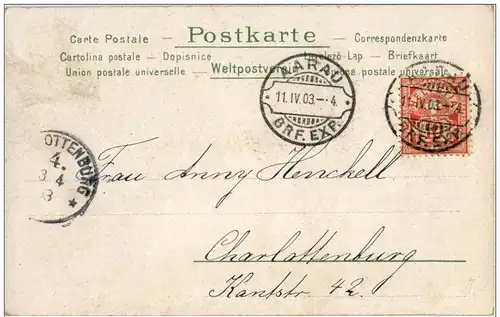 Carte Postale — Postkarte — Correspondenzkarte
Cartolina postale — Dopisnice — Levelező-Lap — Briefkaart
Union postale universelle — Weltpostverein — postale universale
AARAU
11.IV.03.–4.
BRF. EXP.
11.IV.03.–4.
BRF. EXP.
OTTENBURG
4.
3 4
3
Frau Anny Henckell
Charlottenburg
Kantstr. 42.